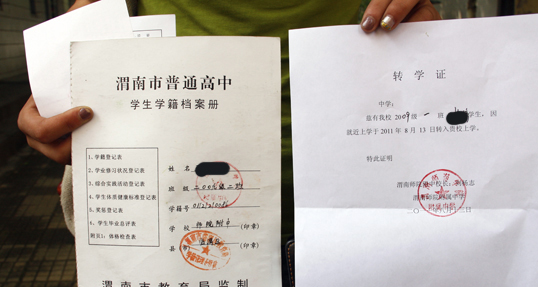 渭南市普通高中
学生学籍档案册
1. 学籍登记表
2. 学业修习状况登记表
3. 综合实践活动登记表
4. 学生体质健康标准登记表
5. 奖惩登记表
6. 学生毕业总评表
附页1: 体格检查表
姓名
班级 二00九级二班
学籍号
学校 (印章)
县 (印章)
渭南市教育局监制
转学证
中学:
兹有我校 2009级 一 班 学生, 因
就近上学于 2011 年 8 月 13 日转入贵校上学。
特此证明
渭南师院附中校长:
渭南师院附属中学